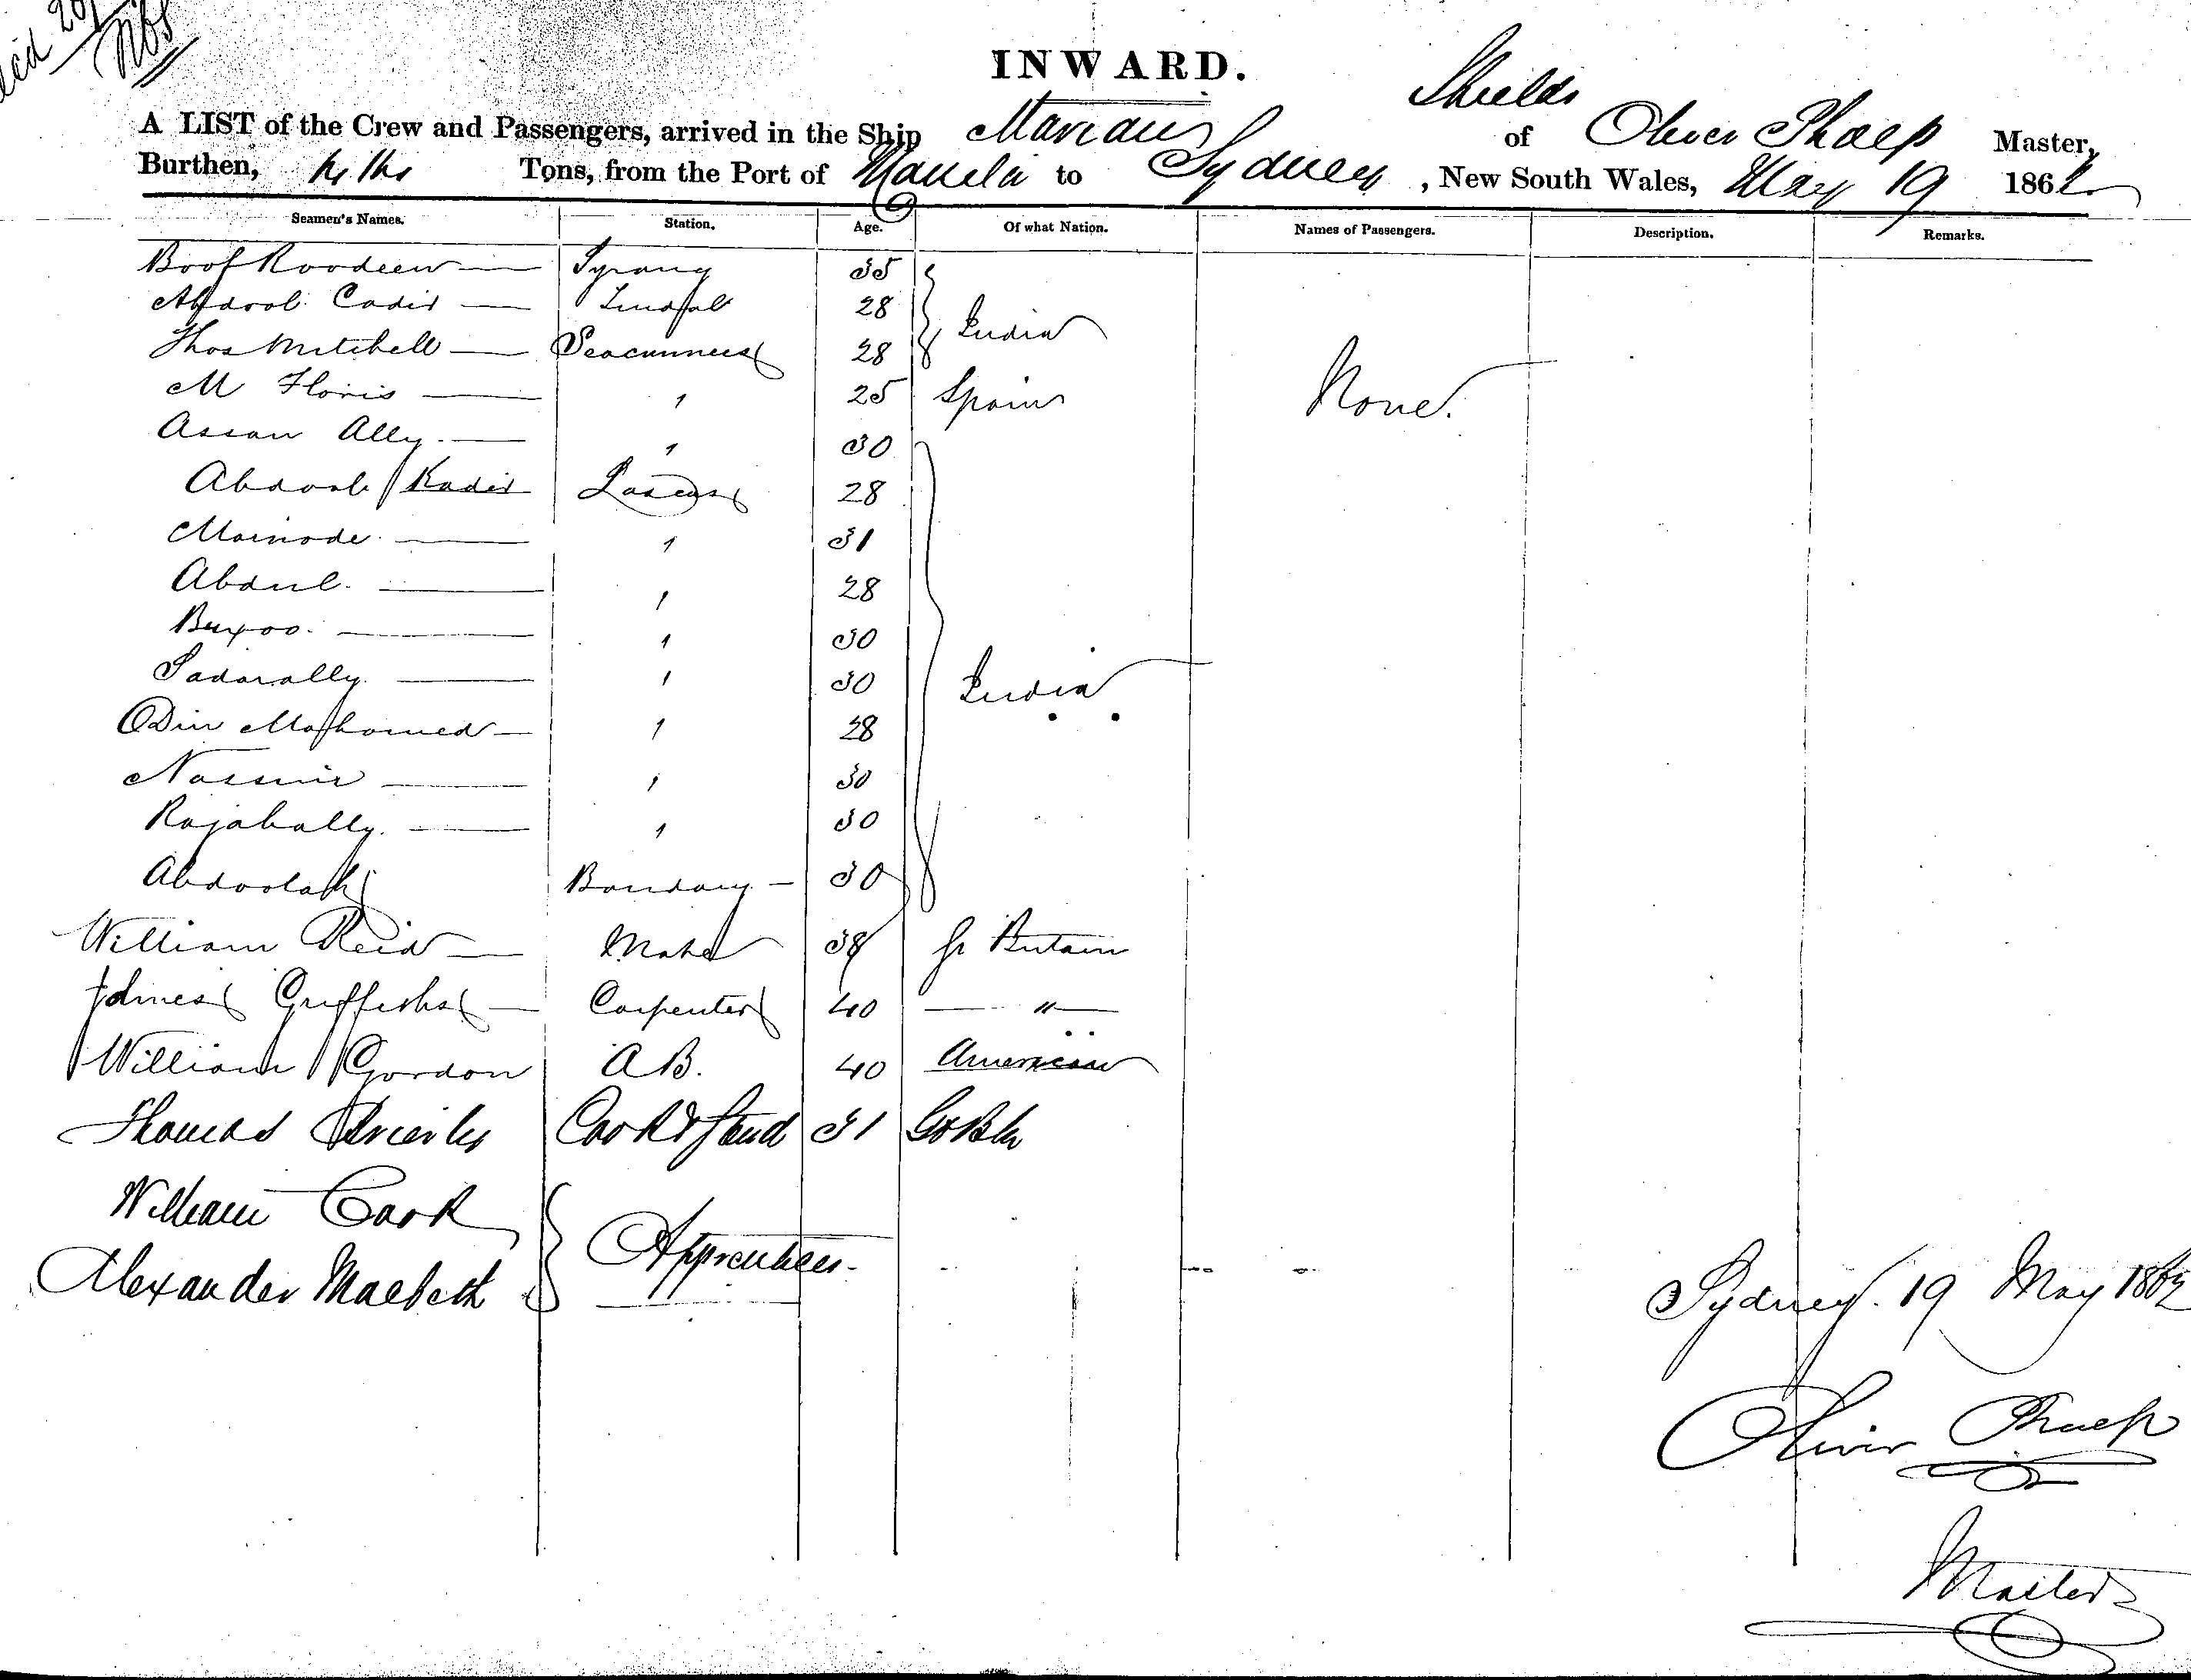 INWARD.
Shields
A LIST of the Crew and Passengers, arrived in the Ship of Oliver Master,
Burthen, Tons, from the Port of Manila to Sydney, New South Wales, May 19 1862
Seamen's Names. Station. Age. Of what Nation. Names of Passengers. Description. Remarks.
35
Abdool Cadir Tindal 28 India
Thos Mitchell Seacunnies 28
M Floris 25 Spain None.
Assan Ally. 30
Abdool Kadir Lascars 28
Mainode 31
Abdul. 28
Buxoo. 30
Sadarally. 30 India
Odin Mahomed 28
Nassim 30
Rajabally. 30
Abdoolah 30
William Reid Mate 38 Gr Britain
James Griffiths Carpenter 40 "
William Gordon A.B. 40 American
Thomas Cook & Stewd 31 Gt Btn
William Cook
Apprentices.
Alexander Macbeth
Sydney. 19 May 1862
Oliver
Master